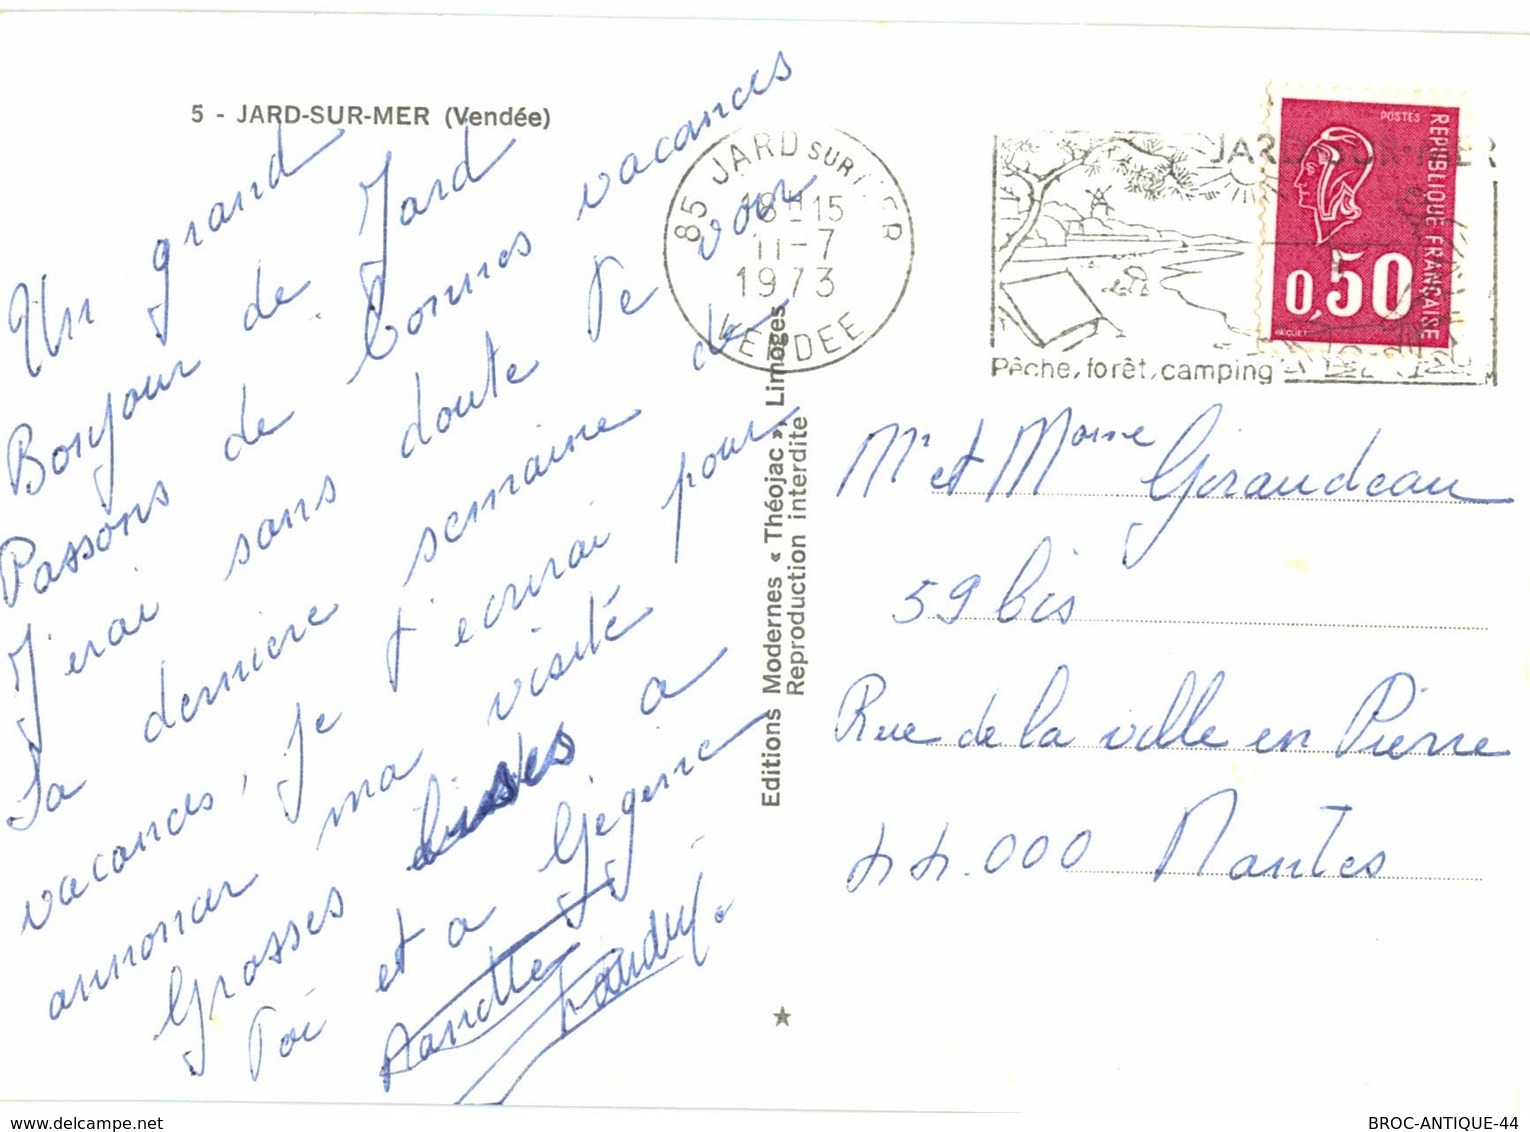 5 - JARD-SUR-MER (Vendée)
Un grand
Bonjour de Jard
Passons de bonnes vacances
J'erai sans doute Te voir
La derniere semaine de
vacances, Je t'ecrirai pour
annoncer ma visité
Grosses bises a
Toi et a Gégène
Editions Modernes « Théojac », Limoges
Reproduction interdite
85 JARD SUR MER
18H15
11-7
1973
VENDEE
JARD-SUR-MER
Pêche, forêt, camping
POSTES
REPUBLIQUE FRANÇAISE
0,50
BEQUET
Mr et Mme Giraudeau
59 bis
Rue de la ville en Pierre
44.000 Nantes
delcampe.net
BROC-ANTIQUE-44